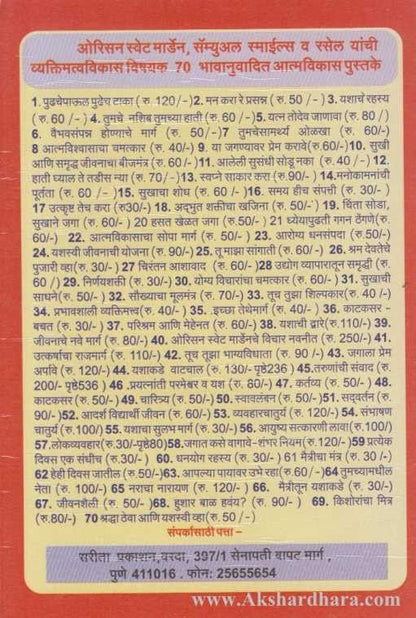 ओरिसन स्वेट मार्डेन, सॅम्युअल स्माईल्स व रसेल यांची
व्यक्तिमत्वविकास विषयक 70 भावानुवादित आत्मविकास पुस्तके
1. पुढचेपाऊल पुढेच टाका ( रु. 120 /-) 2. मन करा रे प्रसन्न ( रु. 50 /- ) 3. यशाचे रहस्य
(रु. 60 /-) 4. तुमचे नशिब तुमच्या हाती (रु. 60/-) 5. यत्न तोदेव जाणावा (रु. 80 /)
6. वैभवसंपन्न होण्याचे मार्ग (रु. 50/-) 7. तुमचेसामर्थ्य ओळखा (रु. 60/-)
8 आत्मविश्वासाचा चमत्कार (रु. 40/-) 9. या जगण्यावर प्रेम करावे(रु.60/-) 10. सुखी
आणि समृद्ध जीवनाचा बीजमंत्र (रु. 60/-) 11. आलेली सुसंधी सोडू नका (रु. 40 /-) 12.
हाती घ्याल ते तडीस न्या (रु. 70 /-) 13. स्वप्ने साकार करा (रु.90/-) 14. मनोकामनांची
पूर्तता ( रु. 60 /- ) 15. सुखाचा शोध (रु. 60/-) 16. समय हीच संपत्ती (रु. 30/-)
17 उत्कृष्ट तेच करा (रु30/-) 18. अद्भुत शक्तीचा खजिना (रु. 50/-) 19. चिंता सोडा,
सुखाने जगा (रु. 60/-) 20 हसत खेळत जगा (रु. 50/-) 21 ध्येयापुढती गगन ठेंगणे(रु.
60/-) 22. आत्मविकासाचा सोपा मार्ग (रु. 50/-) 23. आरोग्य धनसंपदा (रु. 50/-)
24. यशस्वी जीवनाची योजना (रु. 90/-) 25. तू माझा सांगाती (रु. 60/-) 26. श्रम देवतेचे
पुजारी व्हा(रु. 30/-) 27 चिरंतन आशावाद (रु. 60/-) 28 उद्योग व्यापारातून समृद्धी (रु.
60 /) 29. निर्णयशक्ती (रु. 30/-) 30. योग्य विचारांचा चमत्कार (रु. 60/-) 31. सुखाची
साधने(रु. 50/-) 32. सौख्याचा मूलमंत्र (रु. 70/-) 33. तूच तुझा शिल्पकार(रु. 40 /-)
34. प्रभावशाली व्यक्तिमत्त्व(रु. 40/-) 35. इच्छा तेथेमार्ग (रु. 40/-) 36. काटकसर -
बचत (रु. 30/-) 37. परिश्रम आणि मेहेनत (रु. 60/-) 38. यशाची द्वारे(रु.110/-) 39.
जीवनाचे नवे मार्ग (रु. 80/-) 40. ओरिसन स्वेट मार्डेनचे विचार नवनीत (रु. 250/-) 41.
उत्कर्षाचा राजमार्ग (रु. 110/-) 42. तूच तूझा भाग्यविधाता (रु. 90 /-) 43. जगाला प्रेम
अर्पावे (रु. 120/-) 44. यशाकडे वाटचाल (रु. 130/- पृष्ठे236 ) 45.तरुणांची संवाद (रु.
200/- पृष्ठे536 ) 46 .प्रयत्नांती परमेश्वर व यश (रु. 80/-) 47. कर्तव्य (रु. 50/-) 48.
काटकसर (रु. 50/-) 49. चारित्र्य (रु. 50/-) 50. स्वावलंबन (रु. 50/-) 51. सद्वर्तन (रु.
90/-)52. आदर्श विद्यार्थी जीवन (रु. 60/-) 53. व्यवहारचातुर्य (रु. 120/-) 54. संभाषण
चातुर्य (रु.100/) 55. यशाचा सुलभ मार्ग (रु. 30/-) 56. आयुष्य सत्कारणी लावा(रु.100/)
57.लोकव्यवहार(रु.30/-पृष्ठे80)58.जगात कसे वागावे-शंगर नियम(रु.120/-)59 प्रत्येक
दिवस एक संधीच (रु. 30/-) 60. धनयोग रहस्य (रु. 30/-) 61 मैत्रीचा मंत्र (रु. 30 /-)
62 हेही दिवस जातील (रु. 50/-)63. आपल्या पायावर उभे रहा(रु. 60/-)64 तुमच्यामधील
नेता (रु. 100/-) 65 नराचा नारायण (रु. 120/-) 66. मैत्रीतून यशाकडे (रु. 30/-)
67. जीवनशैली (रु. 50/-) 68. हुशार बाळ हवंय? (रु. 90/- ) 69. किशोरांचा मित्र
(रु.80/-) 70 श्रद्धा ठेवा आणि यशस्वी व्हा (रु.50 /-)
संपर्कासाठी पत्ता -
सरीता प्रकाशन,वरदा, 397/1 सेनापती बापट मार्ग ,
पुणे 411016 . फोन: 25655654
www.Akshardhara.com